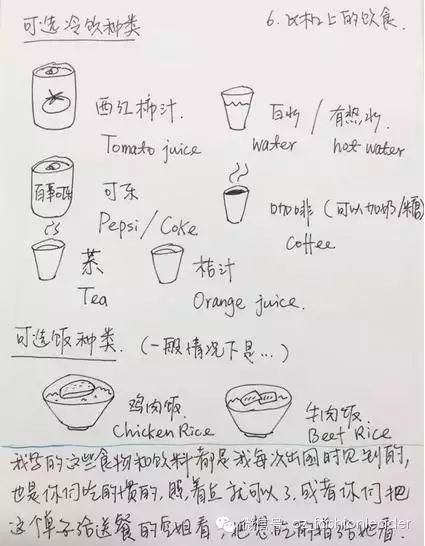 可选冷饮种类
6. 飞机上的饮食.
西红柿汁.
Tomato juice
白水 / 有热水.
water
hot water
百事可乐
可乐
Pepsi/Coke
咖啡 (可以加奶/糖)
coffee
茶
Tea
桔汁
Orange juice.
可选饭种类. (一般情况下是...)
鸡肉饭.
Chicken Rice
牛肉饭
Beef Rice
我写的这些食物和饮料都是我每次出国时见到的,
也是你们吃的惯的, 照着点就可以了, 或者你们把
这个单子给送餐的空姐看, 把想吃的指给她看.
微信号: cz-fashionleader